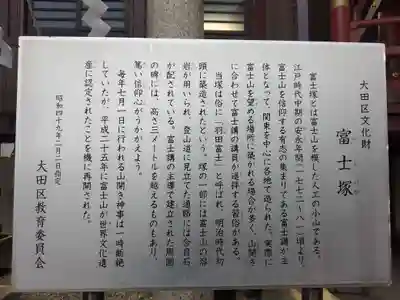 大田区文化財
富士塚
富士塚とは富士山を模した人工の小山である。
江戸時代中期の安永年間(一七七二~八一)頃より、
富士山を信仰する有志の集まりである富士講が主
体となって、関東を中心に各地で造られた。実際に
富士山を望める場所に築かれる場合が多く、山開き
に合わせて富士講の講員が遥拝する習俗がある。
当塚は俗に「羽田富士」と呼ばれ、明治時代初
頭に築造されたという。塚の一部には富士山の溶
岩が用いられ、登山道に見立てた通路には合目石
が配されている。富士講の主導で建立された周囲
の碑には、高さ三メートルを超えるものもあり、
篤い信仰心がうかがえよう。
毎年七月一日に行われる山開き神事は一時断絶
していたが、平成二十五年に富士山が世界文化遺
産に認定されたことを機に再開された。
昭和四十九年二月二日指定
大田区教育委員会